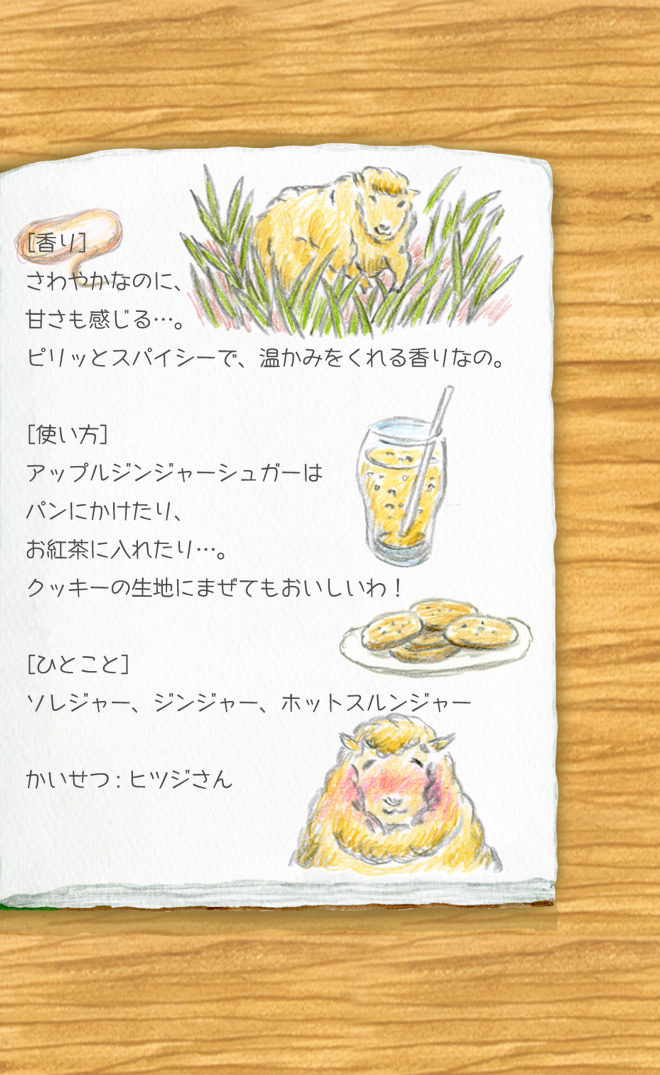 [香り]
さわやかなのに、
甘さも感じる…。
ピリッとスパイシーで、温かみをくれる香りなの。
[使い方]
アップルジンジャーシュガーは
パンにかけたり、
お紅茶に入れたり…。
クッキーの生地にまぜてもおいしいわ！
[ひとこと]
ソレジャー、ジンジャー、ホットスルンジャー
かいせつ：ヒツジさん